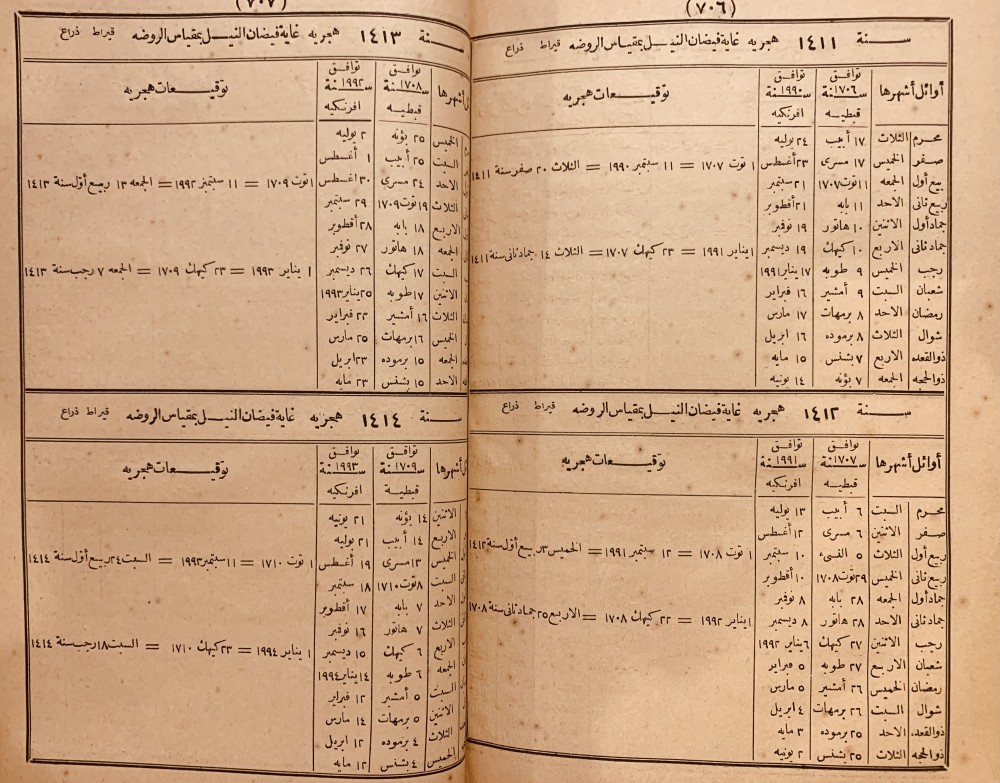 (٧٠٦)
سنة ١٤١١ هجريه غاية فيضان النيل بمقياس الروضه قيراط ذراع
أوائل أشهرها توافق سنة ١٧٠٦ قبطيه توافق سنة ١٩٩٠ افرنكيه توقيعات هجريه
محرم الثلاث ١٧ أبيب ٢٤ يوليه
صفر الخميس ١٧ مسرى ٢٣ أغسطس
١ توت ١٧٠٧ = ١١ سبتمبر ١٩٩٠ = الثلاث ٢٠ صفر سنة ١٤١١
ربيع أول الجمعه ١١ توت ١٧٠٧ ٢١ سبتمبر
ربيع ثانى الاحد ١١ بابه ٢١ أقطوبر
جماد أول الاثنين ١٠ هاتور ١٩ نوفبر
جماد ثانى الاربع ١٠ كيهك ١٩ ديسمبر
١ يناير ١٩٩١ = ٢٣ كيهك ١٧٠٧ = الثلاث ١٤ جماد ثانى سنة ١٤١١
رجب الخميس ٩ طوبه ١٧ يناير ١٩٩١
شعبان السبت ٩ أمشير ١٦ فبراير
رمضان الاحد ٨ برمهات ١٧ مارس
شوال الثلاث ٨ برموده ١٦ ابريل
ذوالقعده الاربع ٧ بشنس ١٥ مايه
ذوالحجه الجمعه ٧ بؤنه ١٤ يونيه
سنة ١٤١٢ هجريه غاية فيضان النيل بمقياس الروضه قيراط ذراع
أوائل أشهرها توافق سنة ١٧٠٧ قبطيه توافق سنة ١٩٩١ افرنكيه توقيعات هجريه
محرم السبت ٦ أبيب ١٣ يوليه
صفر الاثنين ٦ مسرى ١٢ أغسطس
ربيع أول الثلاث ٥ النسىء ١٠ سبتمبر
١ توت ١٧٠٨ = ١٢ سبتمبر ١٩٩١ = الخميس ٣ ربيع أول سنة ١٤١٢
ربيع ثانى الخميس ٢٩ توت ١٧٠٨ ١٠ أقطوبر
جماد أول الجمعه ٢٨ بابه ٨ نوفبر
جماد ثانى الاحد ٢٨ هاتور ٨ ديسمبر
١ يناير ١٩٩٢ = ٢٢ كيهك ١٧٠٨ = الاربع ٢٥ جماد ثانى سنة ١٧٠٨
رجب الاثنين ٢٧ كيهك ٦ يناير ١٩٩٢
شعبان الاربع ٢٧ طوبه ٥ فبراير
رمضان الخميس ٢٦ أمشير ٥ مارس
شوال السبت ٢٦ برمهات ٤ ابريل
ذوالقعده الاحد ٢٥ برموده ٣ مايه
ذوالحجه الثلاث ٢٥ بشنس ٢ يونيه
(٧٠٧)
سنة ١٤١٣ هجريه غاية فيضان النيل بمقياس الروضه قيراط ذراع
أشهرها توافق سنة ١٧٠٨ قبطيه توافق سنة ١٩٩٢ افرنكيه توقيعات هجريه
الخميس ٢٥ بؤنه ٢ يوليه
السبت ٢٥ أبيب ١ أغسطس
الاحد ٢٤ مسرى ٣٠ اغسطس
١ توت ١٧٠٩ = ١١ سبتمبر ١٩٩٢ = الجمعه ١٣ ربيع أول سنة ١٤١٣
الثلاث ١٩ توت ١٧٠٩ ٢٩ سبتمبر
الاربع ١٨ بابه ٢٨ أقطوبر
الجمعه ١٨ هاتور ٢٧ نوفبر
السبت ١٧ كيهك ٢٦ ديسمبر
١ يناير ١٩٩٣ = ٢٣ كيهك ١٧٠٩ = الجمعه ٧ رجب سنة ١٤١٣
الاثنين ١٧ طوبه ٢٥ يناير ١٩٩٣
الثلاث ١٦ أمشير ٢٣ فبراير
الخميس ١٦ برمهات ٢٥ مارس
الجمعه ١٥ برموده ٢٣ ابريل
الاحد ١٥ بشنس ٢٣ مايه
سنة ١٤١٤ هجريه غاية فيضان النيل بمقياس الروضه قيراط ذراع
أشهرها توافق سنة ١٧٠٩ قبطية توافق سنة ١٩٩٣ افرنكيه توقيعات هجريه
الاثنين ١٤ بؤنه ٢١ يونيه
الاربع ١٤ أبيب ٢١ يوليه
الخميس ١٣ مسرى ١٩ أغسطس
١ توت ١٧١٠ = ١١ سبتمبر ١٩٩٣ = السبت ٢٤ ربيع أول سنة ١٤١٤
السبت ٨ توت ١٧١٠ ١٨ سبتمبر
الاحد ٧ بابه ١٧ أقطوبر
الثلاث ٧ هاتور ١٦ نوفبر
الاربع ٦ كيهك ١٥ ديسمبر
١ يناير ١٩٩٤ = ٢٣ كيهك ١٧١٠ = السبت ١٨ رجب سنة ١٤١٤
الجمعه ٦ طوبه ١٤ يناير ١٩٩٤
السبت ٥ أمشير ١٢ فبراير
الاثنين ٥ برمهات ١٤ مارس
الثلاث ٤ برموده ١٢ ابريل
الخميس ٤ بشنس ١٢ مايه